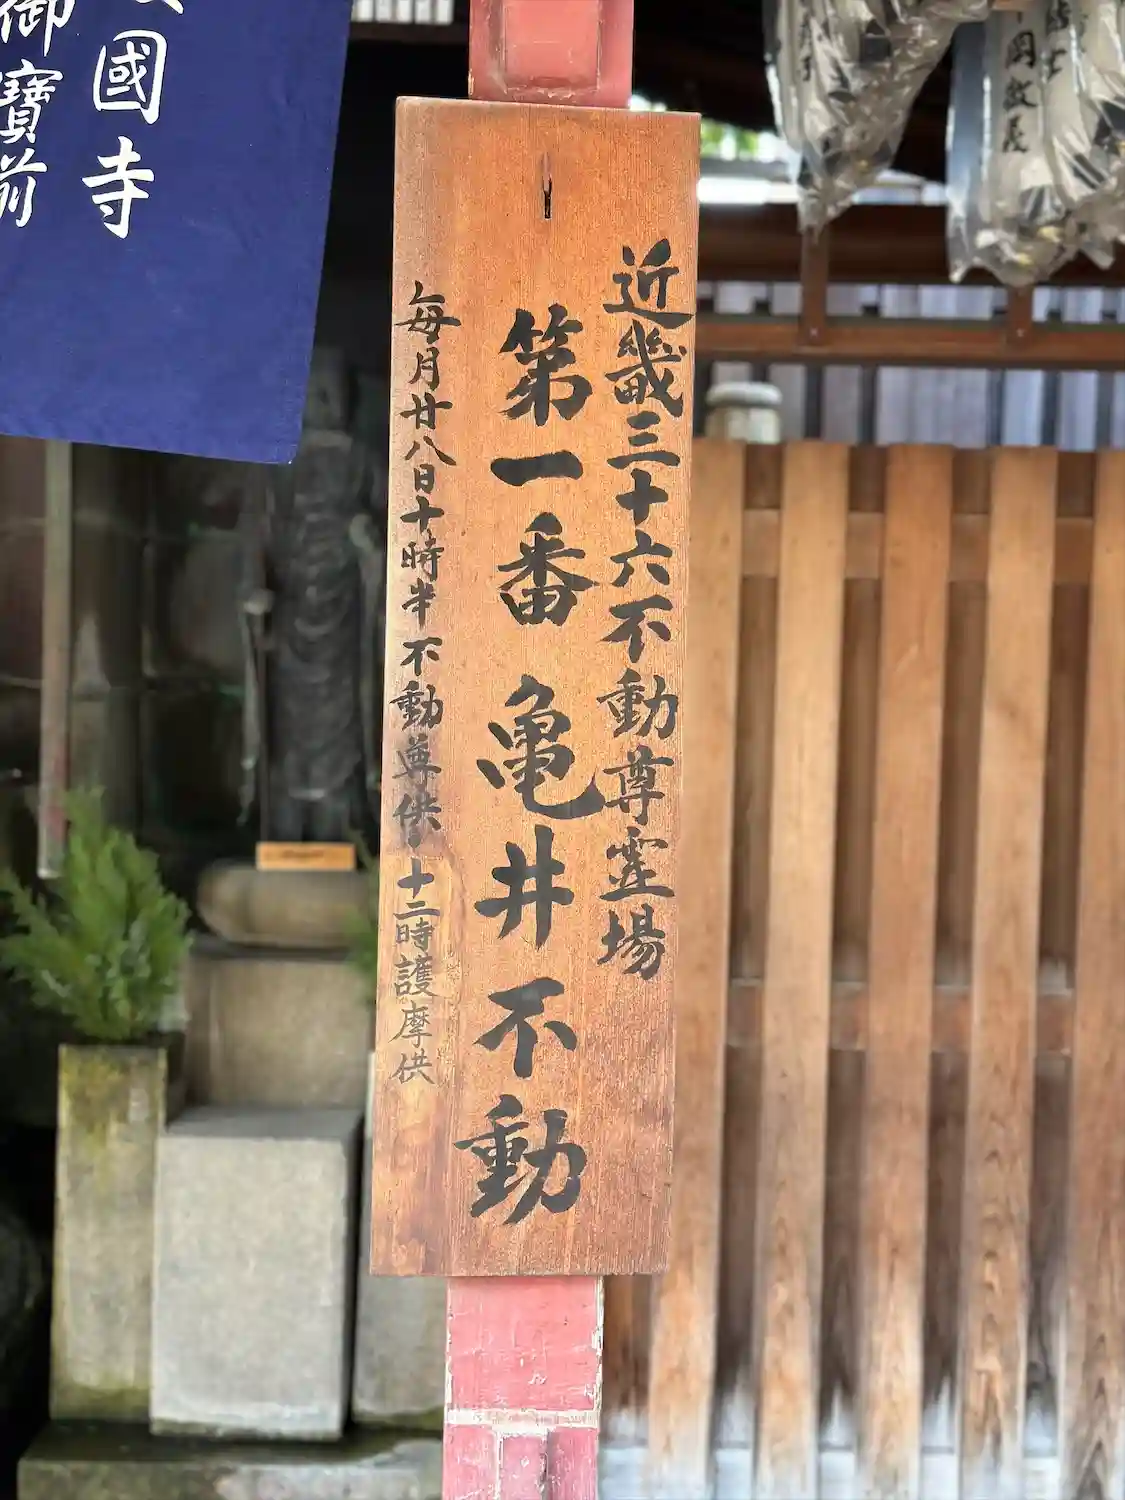 近畿三十六不動尊霊場
第一番 亀井不動
毎月廿八日十時半不動尊供・十二時護摩供
國寺
御寶前